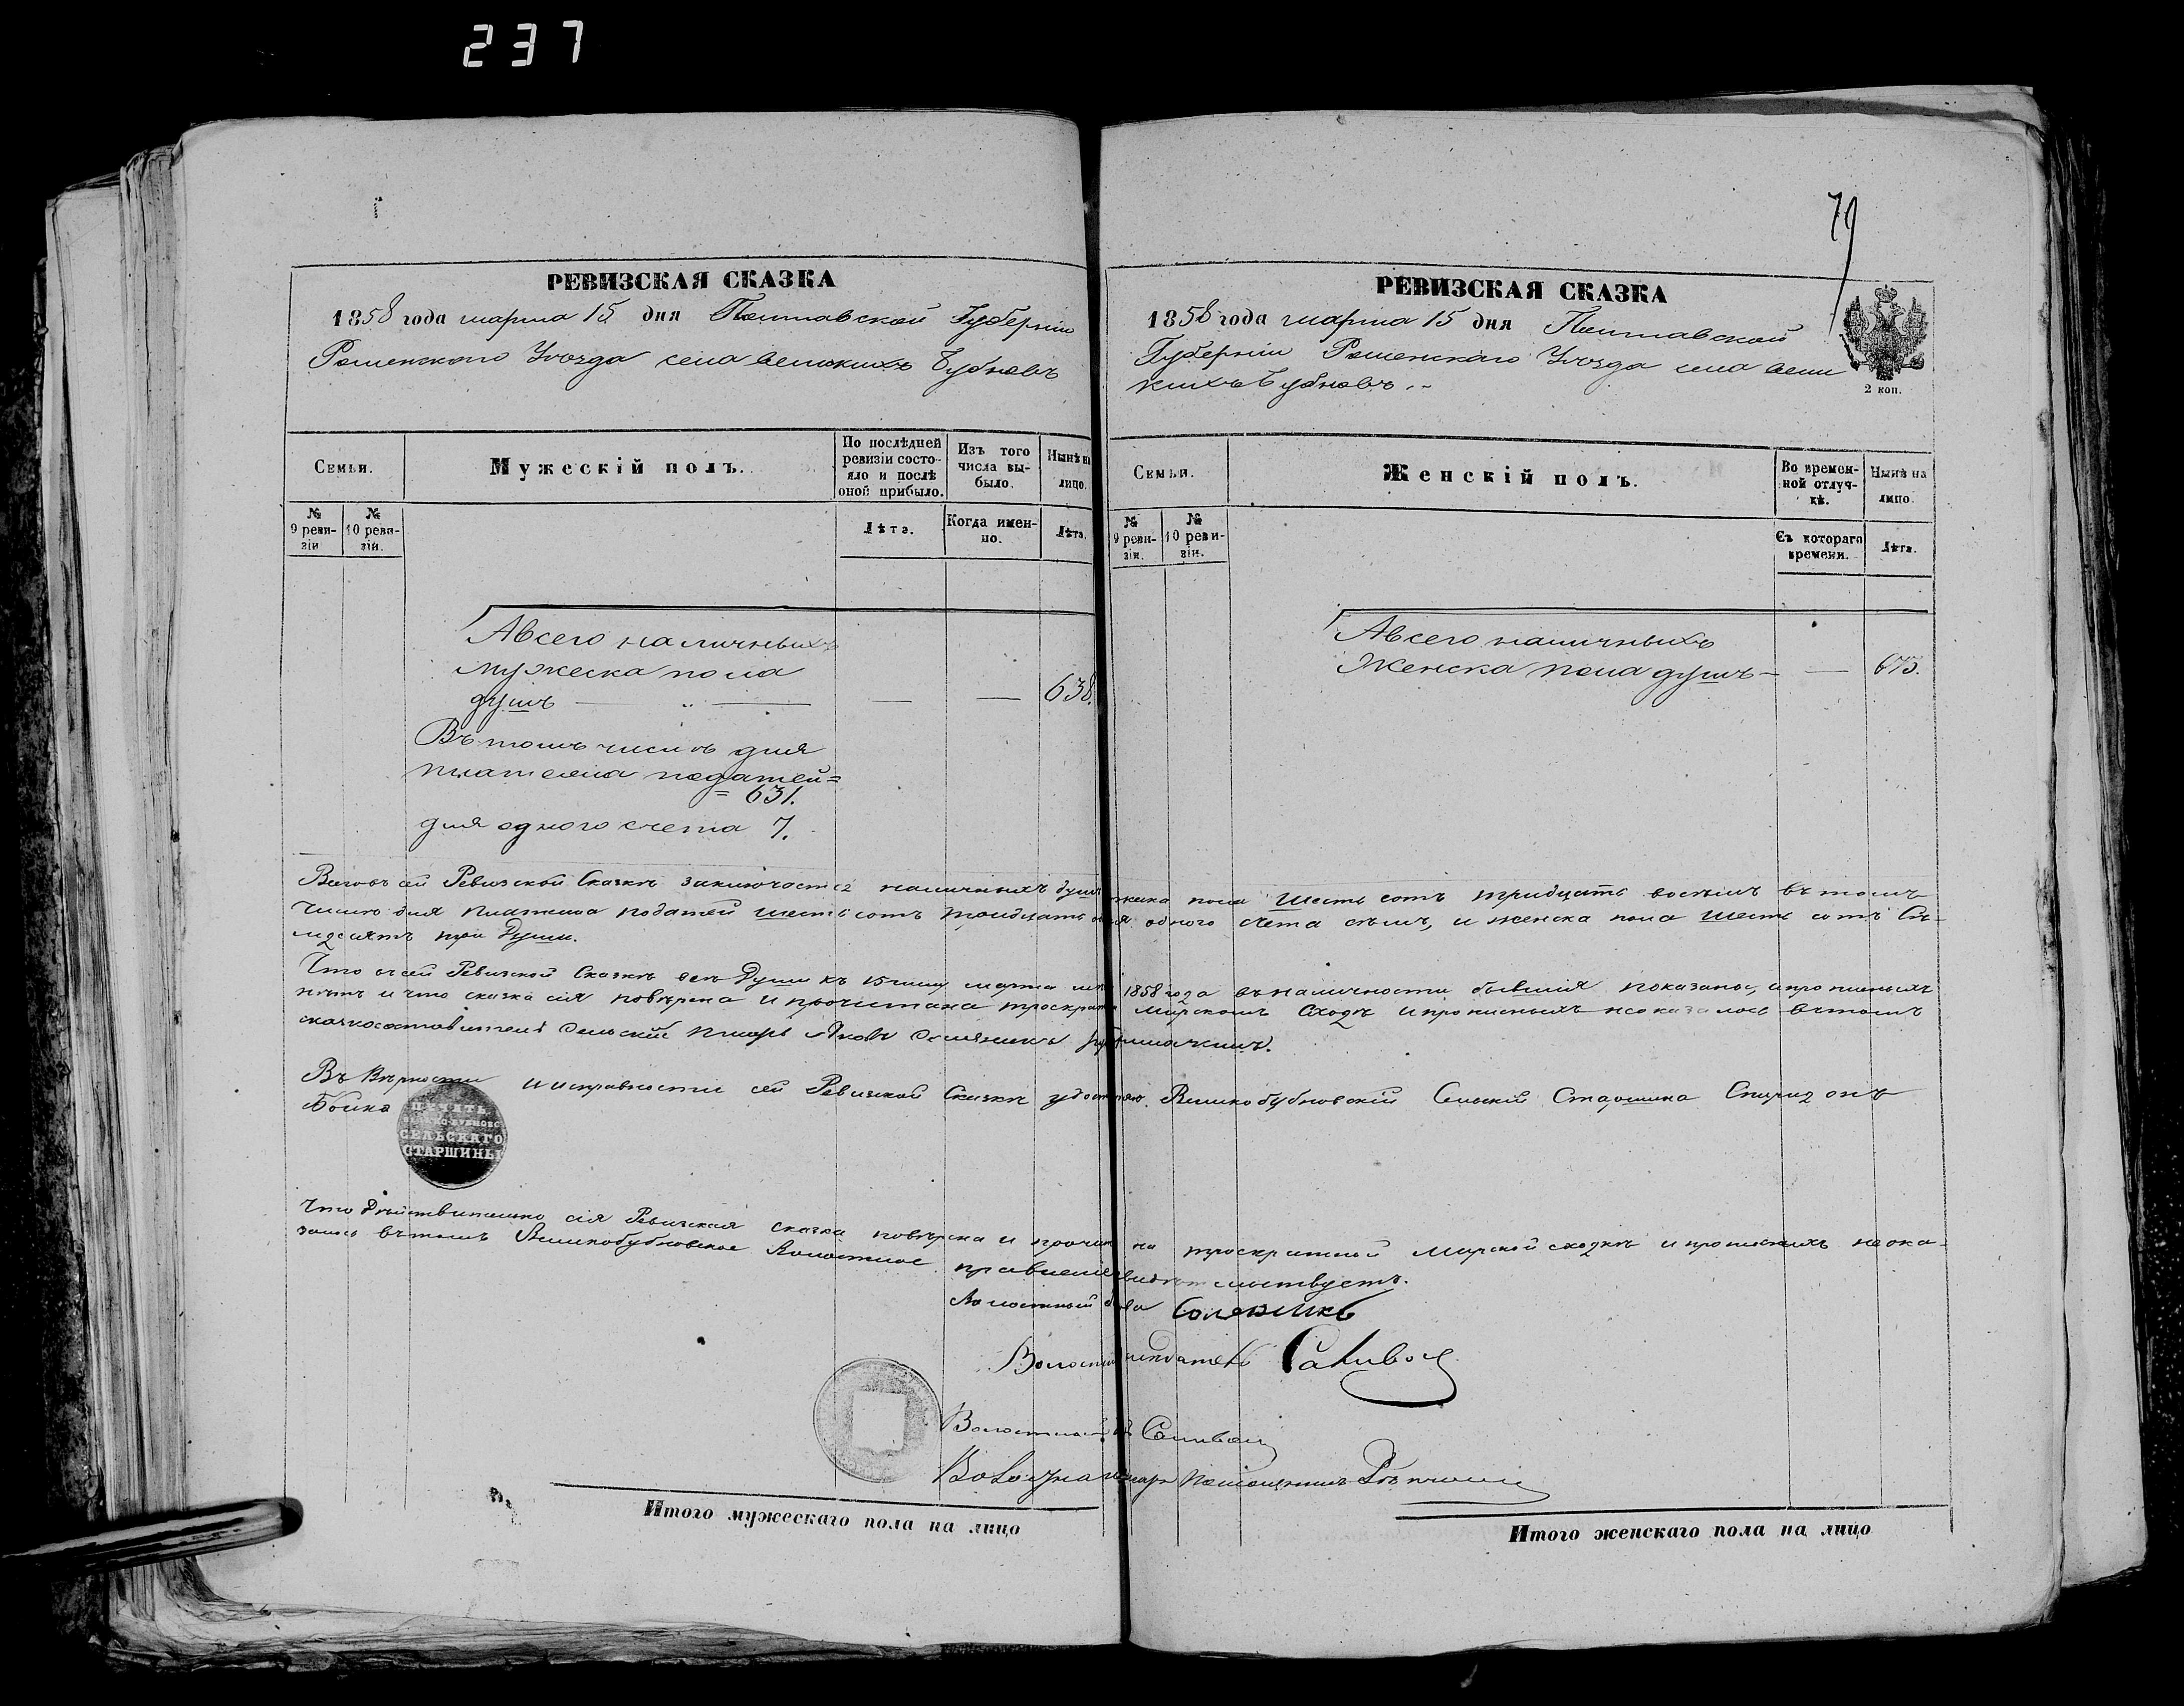 237
79
РЕВИЗСКАЯ СКАЗКА
1858 года марта 15 дня Полтавской Губерніи
Роменского Уѣзда села великихъ Бубновъ
Семьи.
Мужескій полъ.
По послѣдней ревизіи состояло и послѣ оной прибыло.
Изъ того числа выбыло.
Нынѣ на лицо.
№ 9 ревизіи
№ 10 ревизіи.
Лѣта.
Когда именно.
Лѣта.
А всего наличныхъ
мужеска пола
душъ — „ — — — 638.
Въ томъ числѣ для
платежа податей =
= 631.
для одного счета 7.
РЕВИЗСКАЯ СКАЗКА
1858 года марта 15 дня Полтавской
Губерніи Роменскаго Уѣзда села вели
кихъ Бубновъ.
2 коп.
Семьи.
Женскій полъ.
Во временной отлучкѣ.
Нынѣ на лицо.
№ 9 ревизіи.
№ 10 ревизіи.
Съ котораго времени.
Лѣта.
А всего наличныхъ
Женска пола душъ — — 673.
Всего въ сей Ревизской Сказкѣ заключается наличныхъ душъ жеска пола шесть сотъ тридцать восемь въ томъ
числѣ для платежа податей шесть сотъ тридцать одна одного счета семь, и женска пола шесть сотъ Се-
мдесятъ три Души.
Что въ сей Ревизской Сказкѣ всѣ Души къ 15 марта 1858 года въ наличности бывшія показаны, и прописныхъ
нѣтъ и что сказка сія повѣрена и прочитана троекратно Мирскомъ Сходѣ и прописныхъ не оказалось въ томъ
сказкосоставитель Сельскій Писарь Яковъ
Въ Вѣрности и исправности сей Ревизской Сказки удостовѣряю. Великобубновскій Сельскій Старшина Спиридонъ
Бойко
ПЕЧАТЬ
ВЕЛИКО-БУБНОВС
СЕЛЬСКАГО
СТАРШИНЫ
Что дѣйствительно сія Ревизская сказка повѣрена и прочит на троекратной Мирской сходкѣ и прописныхъ не ока-
залось въ томъ Великобубновское Волостное правленіе свидѣтельствуетъ.
Волостный Голова Соляникъ
Волостный Засѣдатель Саливон
Волостный Саливон
Волостной писарь
Итого мужескаго пола на лицо
Итого женскаго пола на лицо